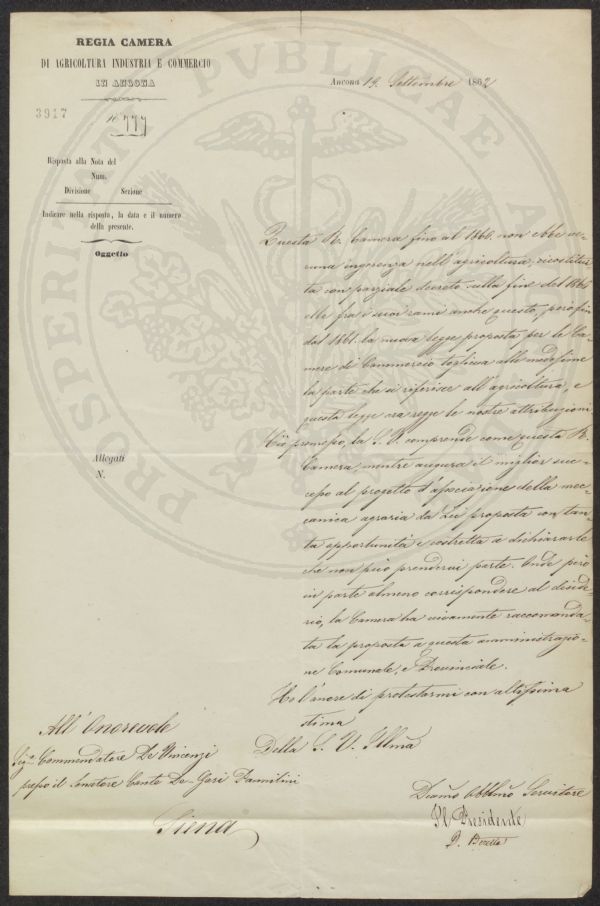 REGIA CAMERA
DI AGRICOLTURA INDUSTRIA E COMMERCIO
IN ANCONA
Ancona 19. Settembre 1862
3917
N. 777
Risposta alla Nota del
Num.
Divisione Sezione
Indicare nella risposta, la data e il numero
della presente.
Oggetto
Questa R. Camera fino al 1860. non ebbe ve-
runa ingerenza nell'agricoltura; ricostitui-
ta con parziale decreto sulla fine del 1860
ebbe fra i suoi rami anche questo, però fin
dal 1861. la nuova legge proposta per le Ca-
mere di Commercio toglieva alle medesime
la parte che si riferisce all'agricoltura, e
questa legge ora regge le nostre attribuzioni
Ciò premesso, la S. V. comprende come questa R.
Camera, mentre augura il miglior suc-
cesso al progetto d'associazione della mec-
canica agraria da Lei proposta con tan-
ta opportunità è costretta a dichiararle
che non può prendervi parte. Onde però
in parte almeno corrispondere al deside-
rio, la Camera ha vivamente raccomanda-
ta la proposta a questa amministrazio-
ne Comunale, e Provinciale.
Ho l'onore di protestarmi con altissima
stima
Della S. V. Illma
Allegati
N.
All'Onorevole
Sigr. Commendatore De Vincenzi
presso il Senatore Conte De-Gori Pannilini
Siena
Devmo Obblmo Servitore
Il Presidente
D. Beretta
PROSPERITATI PUBLICAE